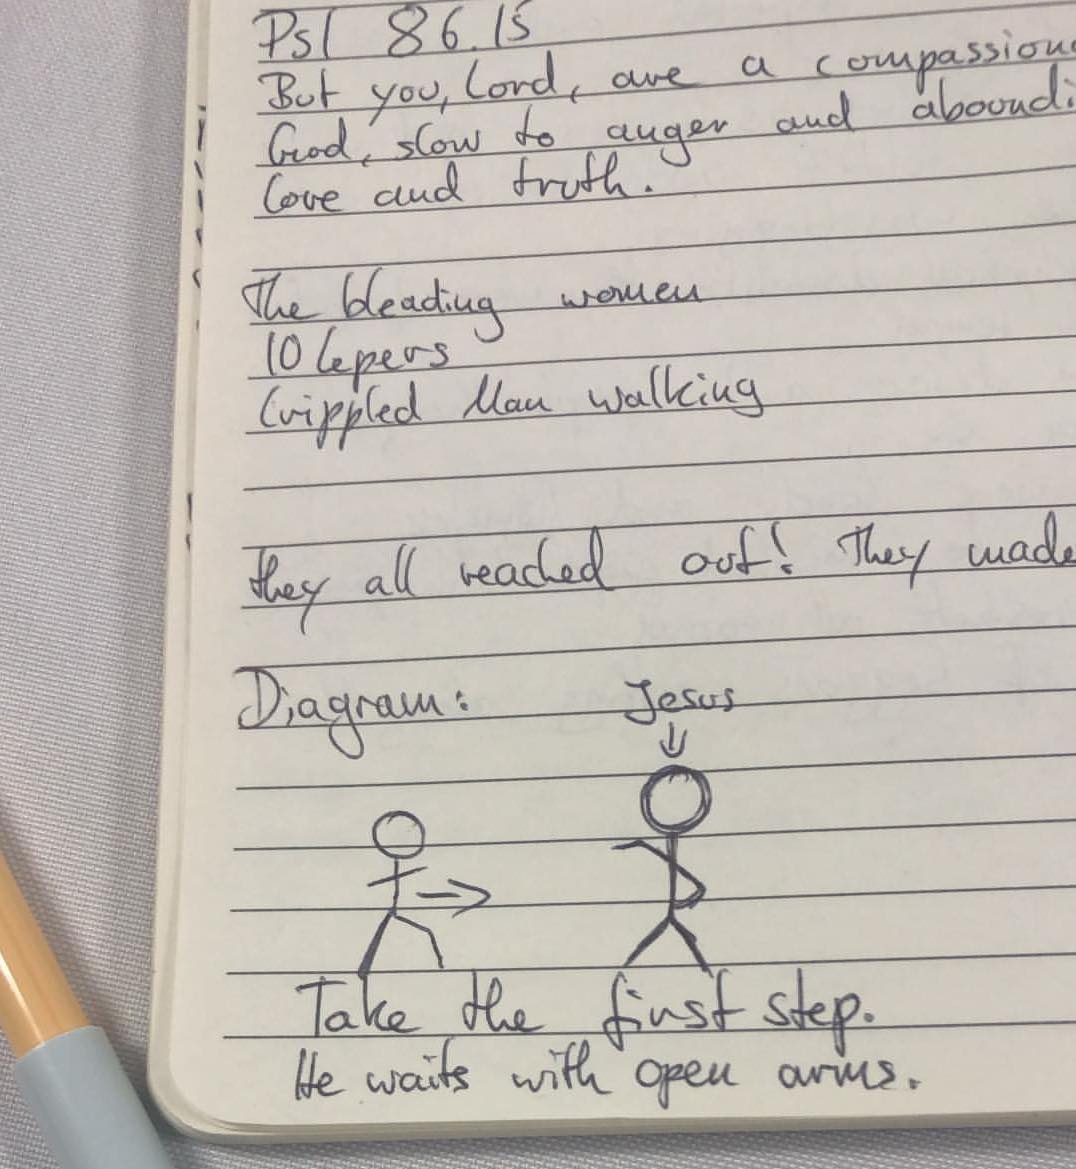 Psl 86.15
But you, Lord, are a compassion
God, slow to anger and aboundi
love and truth.
The bleading women
10 lepers
Crippled Man walking
they all reached out! They made
Diagram:
Jesus
Take the first step.
He waits with open arms.